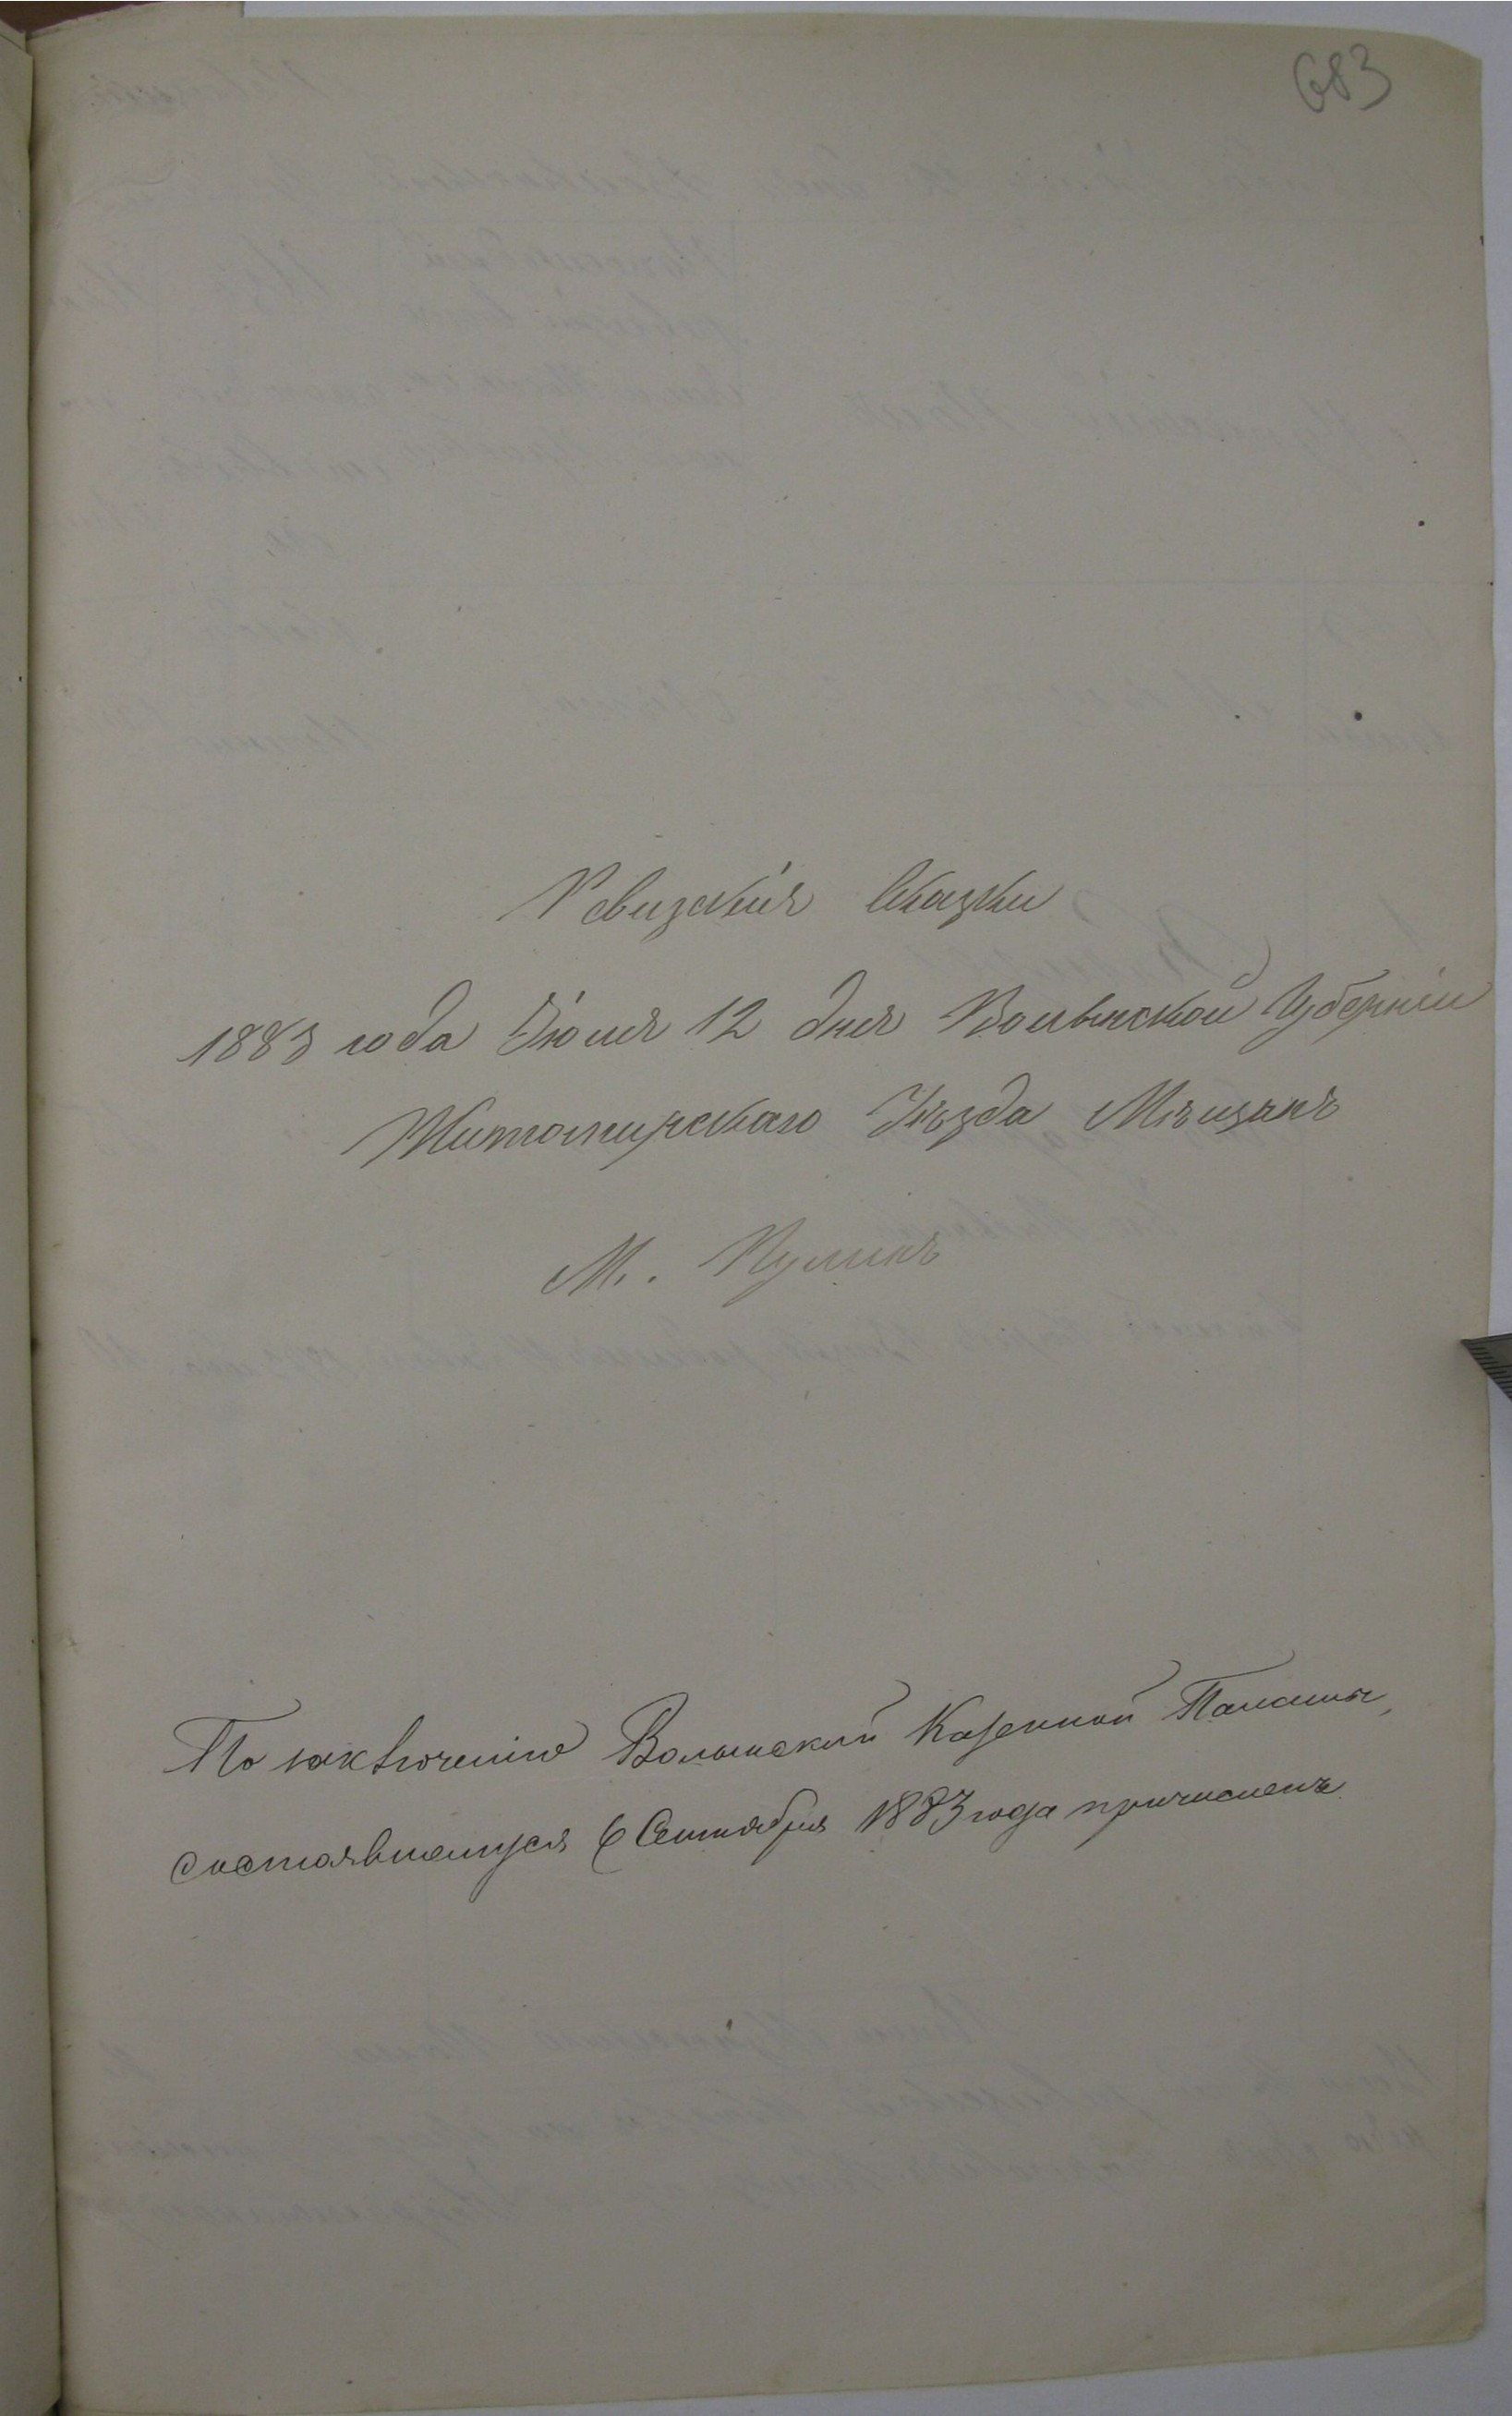 683
Ревизскія Сказки
1883 года Іюля 12 дня Волынской Губерніи
Житомирскаго Уѣзда Мѣщанъ
М. Пулинъ
По заключенію Волынской Казенной Палаты,
состоявшемуся 6 Сентября 1883 года причисленъ